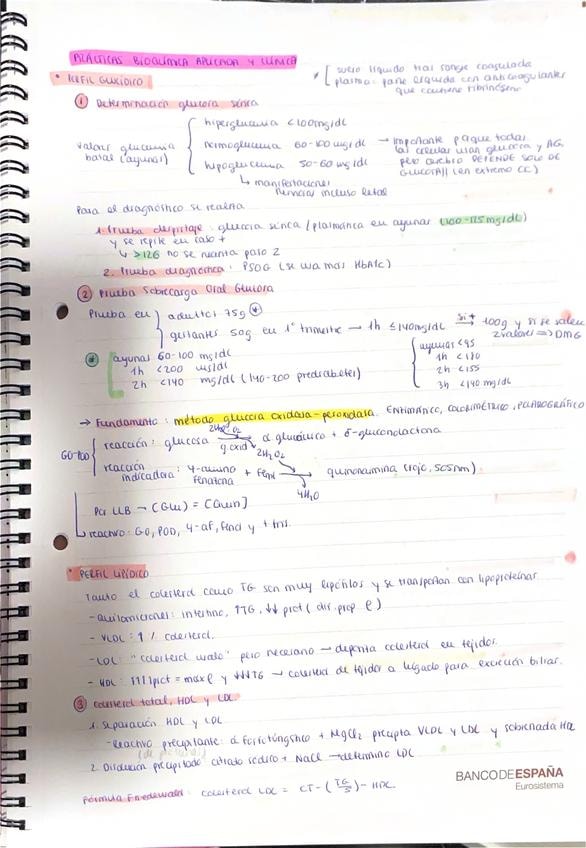 PRÁCTICAS BIOQUÍMICA APLICADA Y CLÍNICA
* [ suero líquido tras sangre coagulada
plasma: parte líquida con anticoagulantes
que contiene fibrinógeno
• PERFIL GLUCÍDICO
① Determinación glucosa sérica
valores glucemia
basal (ayunas)
hiperglucemia <100mg/dL
normoglucemia 60-100 mg/dL → importante porque todas
las células usan glucosa y AG,
pero cerebro DEPENDE SOLO DE
GLUCOSA!! (en extremo CC)
hipoglucemia 50-60 mg/dL
↳ manifestaciones
nerviosas incluso letal
Para el diagnóstico se realiza
1. Prueba despistaje: glucosa sérica / plasmática en ayunas (100-125 mg/dL)
y se repite en caso +
↳ >126 no se necesita paso 2
2. Prueba diagnóstica: PSOG (se usa más HbA1c)
② Prueba Sobrecarga Oral Glucosa
Prueba en
adultos 75g *
gestantes 50g en 1º trimestre → 1h ≤140mg/dL si + → 100g y si se salen
2 valores ⇒ DMG
* ayunas 60-100 mg/dL
1h <200 mg/dL
2h <140 mg/dL (140-200 prediabetes)
ayunas <95
1h <180
2h <155
3h <140 mg/dL
→ Fundamento: método glucosa oxidasa-peroxidasa. ENZIMÁTICO, COLORIMÉTRICO, POLAROGRÁFICO
GO-POD
reacción: glucosa 2H2O, O2 → g.oxid á glucónico + δ-gluconolactona
2H2O2
reacción indicadora: 4-amino fenazona + Fenol → quinonamina (rojo, 505nm)
4H2O
Por LLB → [Glu] = [Quin]
↳ reactivo: GO, POD, 4-af, fenol y + tris.
• PERFIL LIPÍDICO
Tanto el colesterol como TG son muy lipófilos y se transportan con lipoproteínas
- Quilomicrones: intestino, ↑TG, ↓↓ prot (dir. prop ρ)
- VLDL: ↑ % colesterol.
- LDL: "colesterol malo" pero necesario → deposita colesterol en tejidos.
- HDL: ↑↑↑ prot = max ρ y ↓↓↓TG → colesterol de tejidos a hígado para excreción biliar.
③ Colesterol total, HDL y LDL.
1. Separación HDL y LDL
- Reactivo precipitante: á fosfotúngstico + MgCl2 precipita VLDL y LDL y sobrenada HDL
2. Disolución precipitado citrato sódico + NaCl → determino LDL
Fórmula Friedewald: colesterol LDL = CT - (TG/5) - HDL
BANCO DE ESPAÑA
Eurosistema